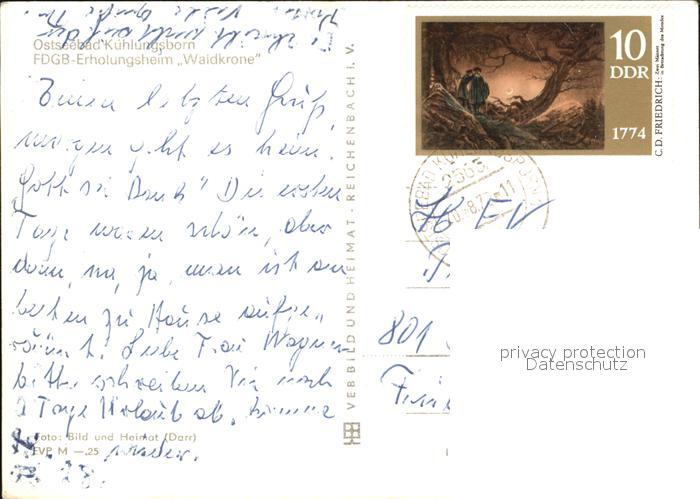 Ostseebad Kühlungsborn
FDGB-Erholungsheim „Waidkrone"
Einen letzten Gruß,
morgen geht es heim.
Gott sei Dank" Die ersten
Tage waren schön, aber
dann, na, ja, man ist am
besten zu Hause aufge„
räumt. Liebe Frau Wagner
bitte schreiben Sie noch
2 Tage Urlaub ab, komme
wieder.
Foto: Bild und Heimat (Darr)
EVP M —.25
VEB BILD UND HEIMAT · REICHENBACH I. V.
10
DDR
1774
C.D. FRIEDRICH: Zwei Männer
in Betrachtung des Mondes
2565
801
privacy protection
Datenschutz